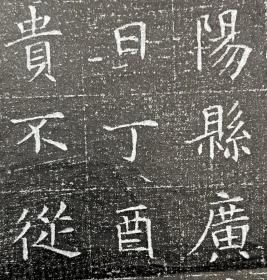 陽縣廣
日丁酉
貴不從